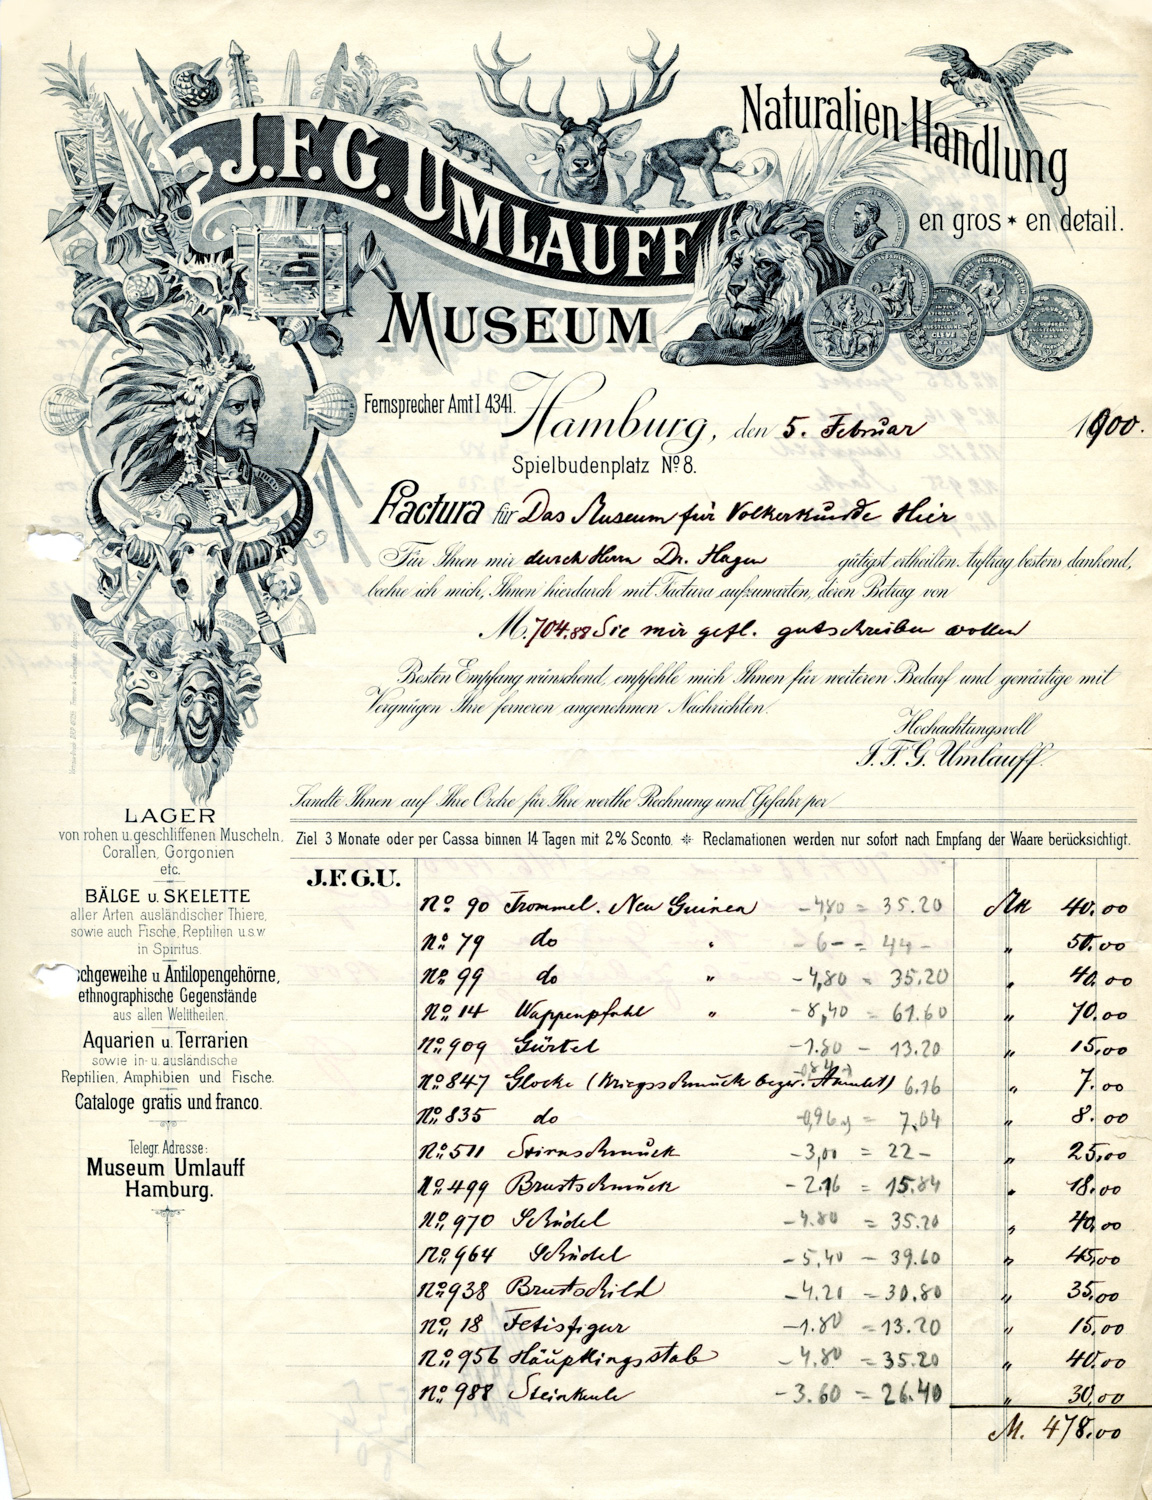 J.F.G. UMLAUFF
MUSEUM
Naturalien-Handlung
en gros * en detail.
Fernsprecher Amt I 4341.
Hamburg, den 5. Februar 1900.
Spielbudenplatz No 8.
Factura für Das Museum für Völkerkunde Hier
Für Ihren mir durch Herrn Dr. Hagen gütigst ertheilten Auftrag bestens dankend,
beehre ich mich, Ihnen hierdurch mit Factura aufzuwarten, deren Betrag von
M. 704.88 Sie mir gefl. gutschreiben wollen
Besten Empfang wünschend, empfehle mich Ihnen für weiteren Bedarf und gewärtige mit
Vergnügen Ihre ferneren angenehmen Nachrichten.
Hochachtungsvoll
J. F. G. Umlauff.
Sandte Ihnen auf Ihre Ordre für Ihre werthe Rechnung und Gefahr per
Ziel 3 Monate oder per Cassa binnen 14 Tagen mit 2% Sconto. * Reclamationen werden nur sofort nach Empfang der Waare berücksichtigt.
LAGER
von rohen u. geschliffenen Muscheln,
Corallen, Gorgonien
etc.
BÄLGE u. SKELETTE
aller Arten ausländischer Thiere,
sowie auch Fische, Reptilien u.s.w.
in Spiritus.
schgeweihe u. Antilopengehörne,
ethnographische Gegenstände
aus allen Welttheilen.
Aquarien u. Terrarien
sowie in- u. ausländische
Reptilien, Amphibien und Fische.
Cataloge gratis und franco.
Telegr. Adresse:
Museum Umlauff
Hamburg.
J.F.G.U.
No. 90 Trommel. Neu Guinea - 4,80 = 35.20 Mk 40.00
No. 79 do " - 6- = 44- " 50.00
No. 99 do " - 4,80 = 35.20 " 40.00
No. 14 Wappenpfahl " - 8,40 = 61.60 " 70.00
No. 909 Gürtel - 1.80 - 13.20 " 15.00
No. 847 Glocke (Kriegsschmuck bezw. Amulet) 6.16 " 7.00
No. 835 do - 0,96 = 7,04 " 8.00
No. 511 Stirnschmuck - 3,00 = 22- " 25.00
No. 499 Brustschmuck - 2.16 = 15.84 " 18.00
No. 970 Schädel - 4.80 = 35.20 " 40.00
No. 964 Schädel - 5,40 - 39.60 " 45.00
No. 938 Brustschild - 4.20 - 30.80 " 35.00
No. 18 Fetisfigur - 1.80 = 13.20 " 15.00
No. 956 Häuptlingsstab - 4,80 = 35.20 " 40.00
No. 988 Steinkeule - 3.60 = 26.40 " 30.00
M. 478.00